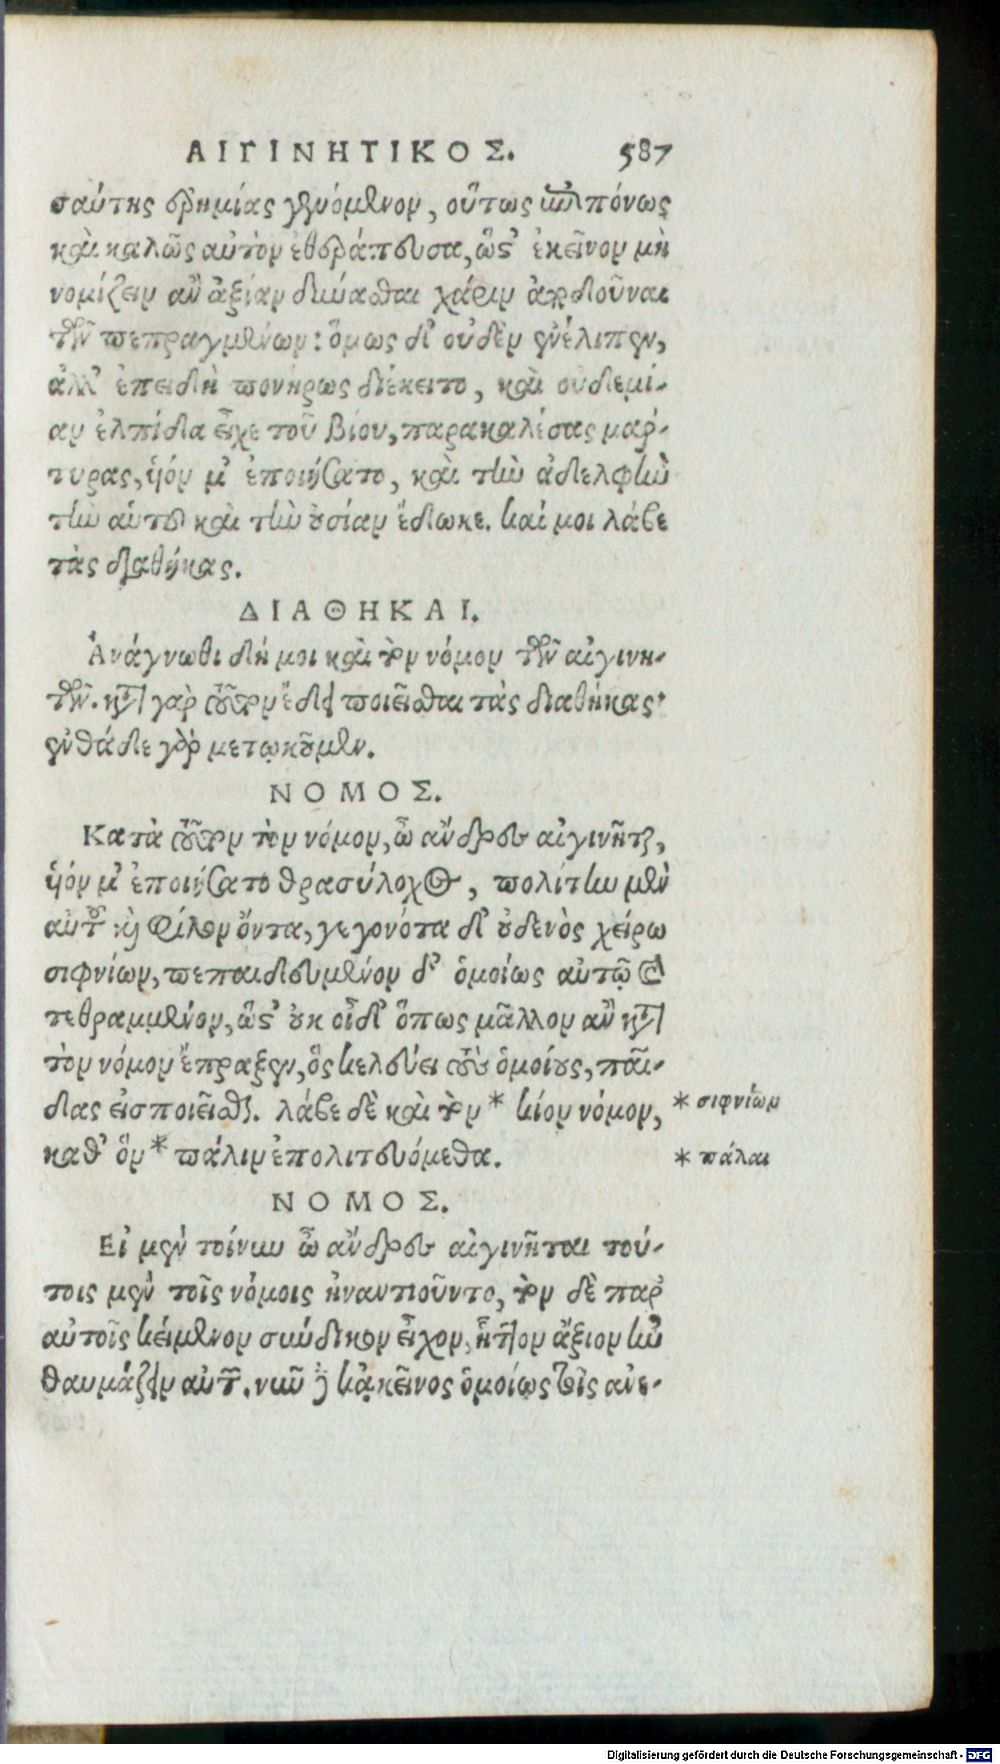 ΑΙΓΙΝΗΤΙΚΟΣ. 587
σαύτης ἐρημίας γενόμενον, οὕτως ἐπιπόνως
καὶ καλῶς αὐτὸν ἐθεράπευσα, ὥστ' ἐκεῖνον μὴ
νομίζειν ἂν ἀξίαν δύνασθαι χάριν ἀποδοῦναι
τῶν πεπραγμένων: ὅμως δ' οὐδὲν ἐνέλιπεν,
ἀλλ' ἐπειδὴ πονήρως διέκειτο, καὶ οὐδεμί-
αν ἐλπίδα εἶχε τοῦ βίου, παρακαλέσας μάρ-
τυρας, ὑόν μ' ἐποιήσατο, καὶ τὴν ἀδελφὴν
τὴν αὑτοῦ καὶ τὴν οὐσίαν ἔδωκε. καί μοι λάβε
τὰς διαθήκας.
ΔΙΑΘΗΚΑΙ.
Ἀνάγνωθι δή μοι καὶ τὸν νόμον τῶν αἰγινη-
τῶν. κατὰ γὰρ τοῦτον ἔδει ποιεῖσθαι τὰς διαθήκας·
ἐνθάδε γὰρ μετῳκοῦμεν.
ΝΟΜΟΣ.
Κατὰ τοῦτον τὸν νόμον, ὦ ἄνδρες αἰγινῆται,
ὑόν μ' ἐποιήσατο θρασύλοχος, πολίτην μὲν
αὐτοῦ καὶ φίλον ὄντα, γεγονότα δ' οὐδενὸς χείρω
σιφνίων, πεπαιδευμένον δ' ὁμοίως αὐτῷ καὶ
τεθραμμένον, ὥστ' οὐκ οἶδ' ὅπως μᾶλλον ἂν κατὰ
τὸν νόμον ἔπραξεν, ὃς κελεύει τοὺς ὁμοίους, παῖ-
δας εἰσποιεῖσθαι. λάβε δὲ καὶ τὸν * κίον νόμον, * σιφνίων
καθ' ὃν * πάλιν ἐπολιτευόμεθα. * πάλαι
ΝΟΜΟΣ.
Εἰ μὲν τοίνυν ὦ ἄνδρες αἰγινῆται τού-
τοις μὲν τοῖς νόμοις ἠναντιοῦντο, τὸν δὲ παρ'
αὐτοῖς κείμενον σύνδικον εἶχον, ἧττον ἄξιον ἦν
θαυμάζειν αὐτῶν. νῦν δὲ κἀκεῖνος ὁμοίως τοῖς ἀνε-
Digitalisierung gefördert durch die Deutsche Forschungsgemeinschaft - DFG